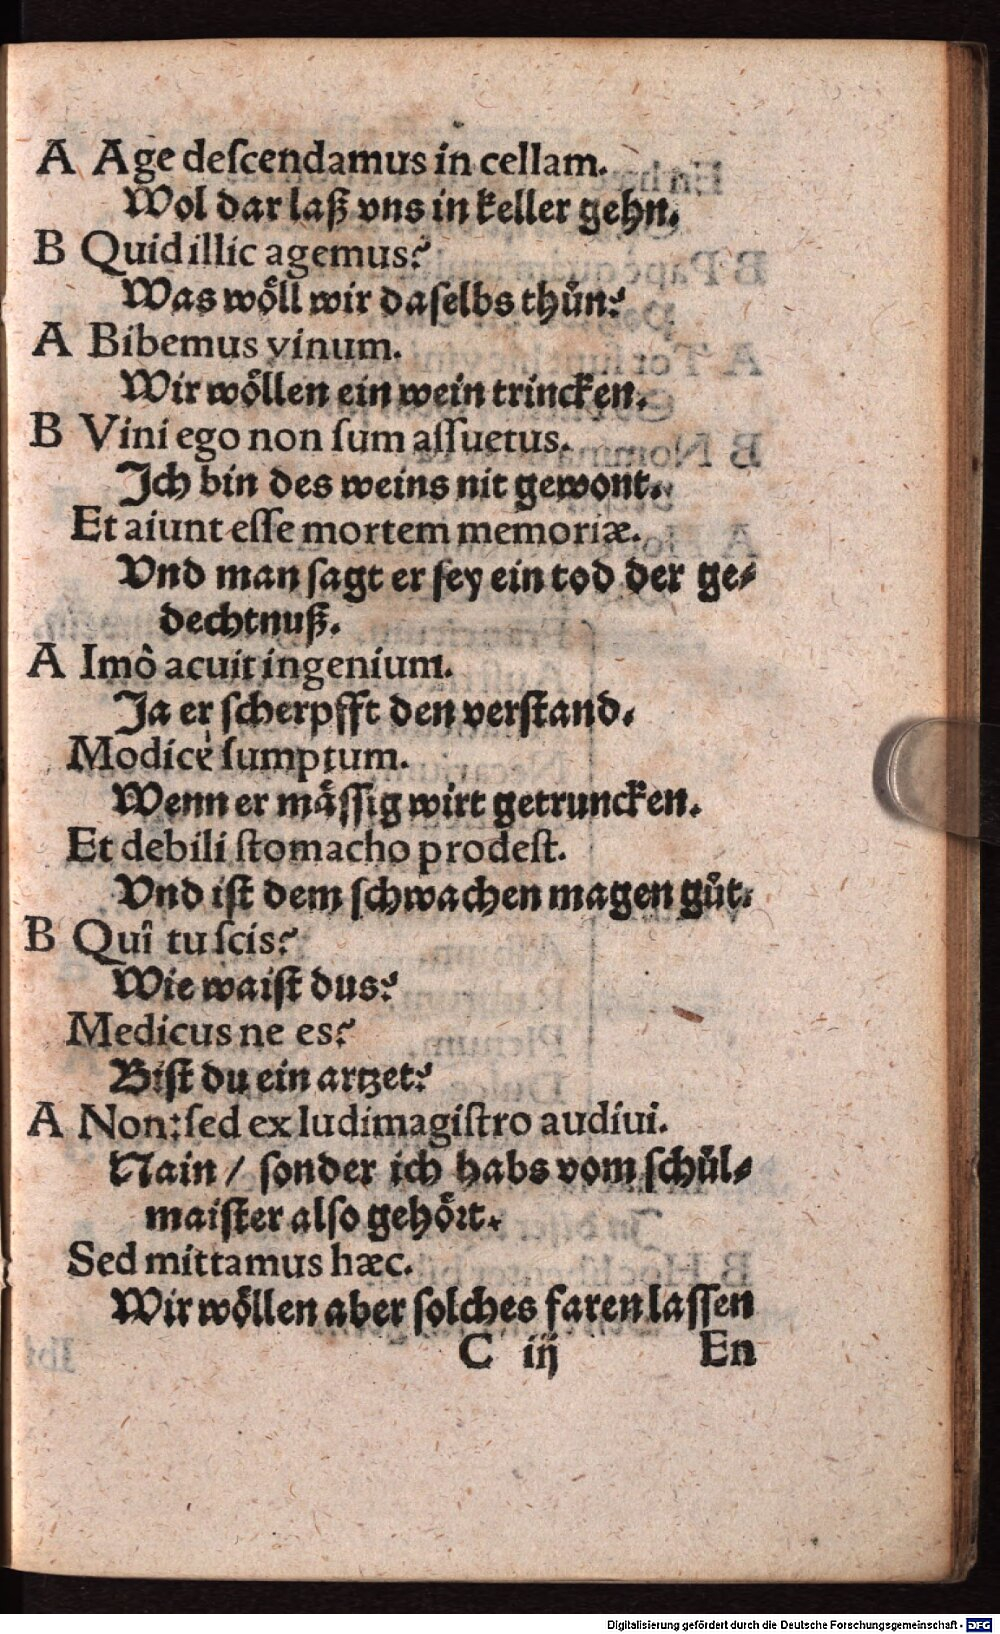 A Age deſcendamus in cellam.
Wol dar laß vns in keller gehn.
B Quid illic agemus?
Was wöll wir daſelbs thůn?
A Bibemus vinum.
Wir wöllen ein wein trincken.
B Vini ego non ſum aſſuetus.
Ich bin des weins nit gewont.
Et aiunt eſſe mortem memoriæ.
Vnd man ſagt er ſey ein tod der ge⸗
dechtnuß.
A Imò acuit ingenium.
Ja er ſcherpfft den verſtand.
Modicè ſumptum.
Wenn er mäſſig wirt getruncken.
Et debili ſtomacho prodeſt.
Vnd iſt dem ſchwachen magen gůt.
B Quî tu ſcis?
Wie waiſt dus?
Medicus ne es?
Biſt du ein artzet?
A Non: ſed ex ludimagiſtro audiui.
Nain / ſonder ich habs vom ſchůl⸗
maiſter alſo gehört.
Sed mittamus hæc.
Wir wöllen aber ſolches faren laſſen
C iij En
Digitalisierung gefördert durch die Deutsche Forschungsgemeinschaft - DFG